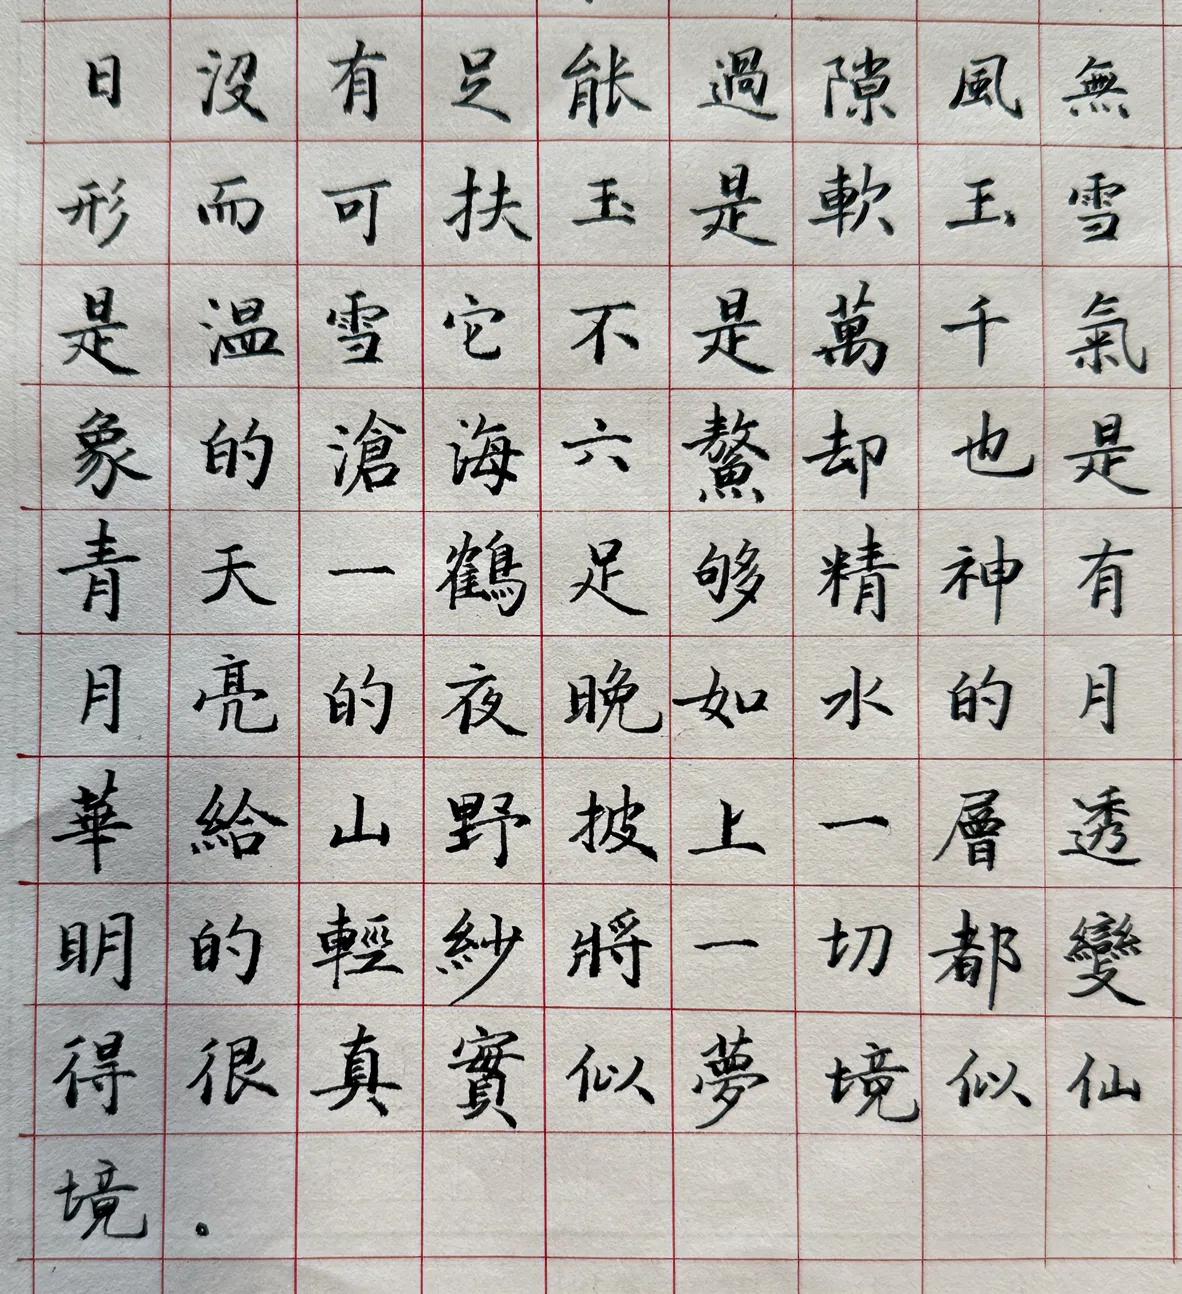 日沒有足能過隙風無
形而可扶玉是軟玉雪
是溫雪它不是萬千氣
象的滄海六鰲却也是
青天一鶴足够精神有
月亮的夜晚如水的月
華給山野披上一層透
明的輕紗將一切都變
得很真實似夢境似仙
境。